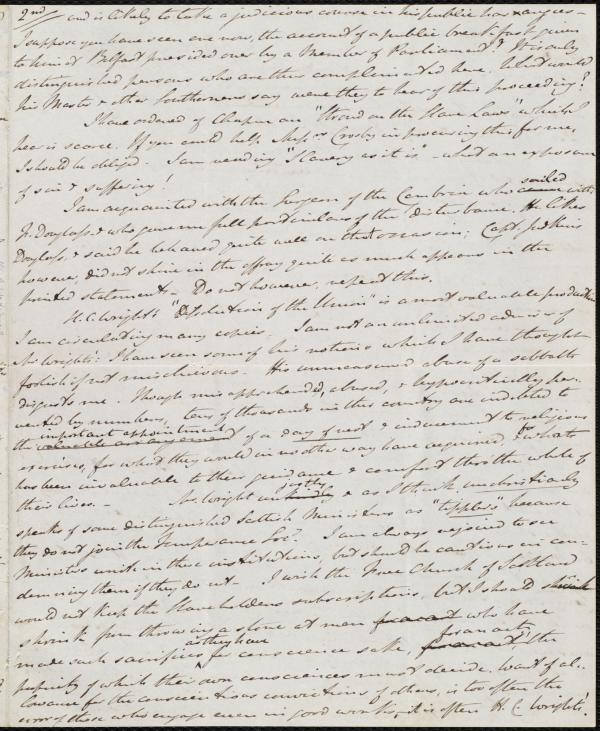 2nd and is likely to take a judicious course in his public harangues -
I suppose you have seen ere now, the account of a public breakfast given
to him at Belfast presided over by a Member of Parliament? It is only
distinguished persons who are thus complimented here. What would
his Master & other Southerners say were they to hear of this proceeding?
I have ordered of Chapman "Stroud on the Slave Laws" which I
hear is scarce. If you could help Messrs Crosby in procuring this for me,
I should be obliged. I am reading "Slavery as it is" - what an exposure
of sin & suffering!
I am acquainted with the Surgeon of the Cambria who sailed with
F. Douglass, & who gave me full particulars of the disturbance. He likes
Douglass, & said he behaved quite well on that occasion; Capt. Judkins
however, did not shine in the affray quite as much appears in the
printed statements. Do not however, repeat this.
H. C. Wright's "Dissolution of the Union" is a most valuable production
I am circulating many copies. I am not an unlimited admirer of
Mr Wright's: I have seen some of his notions which I have thought
foolish if not mischievous. His unmeasured abuse of a sabbath
disgusts me. Though misapprehended, abused, & hypocritically per-
verted by numbers, tens of thousands in this country are indebted to
the important appointment of a day of rest & inducement to religious
exercises, for what they would in no other way have acquired, & to what
has been invaluable to their guidance & comfort thro' the whole of
their lives. - Mr Wright unjustly & as I think unchristianly
speaks of some distinguished Scottish Ministers as "tipplers" because
they do not join the Temperance Soc.y I am always rejoiced to see
Ministers unite in these institutions, but should be cautious in con-
demning them if they do not - I wish the Free Church of Scotland
would not keep the Slaveholders subscriptions, but I should
shrink from throwing a stone at men who have
made such sacrifices as they have for conscience sake, for an act, the
propriety of which their own consciences must decide. Want of al-
lowance for the conscientious convictions of others, is too often the
error of those who engage even in good works, it is often H. C. Wright's!